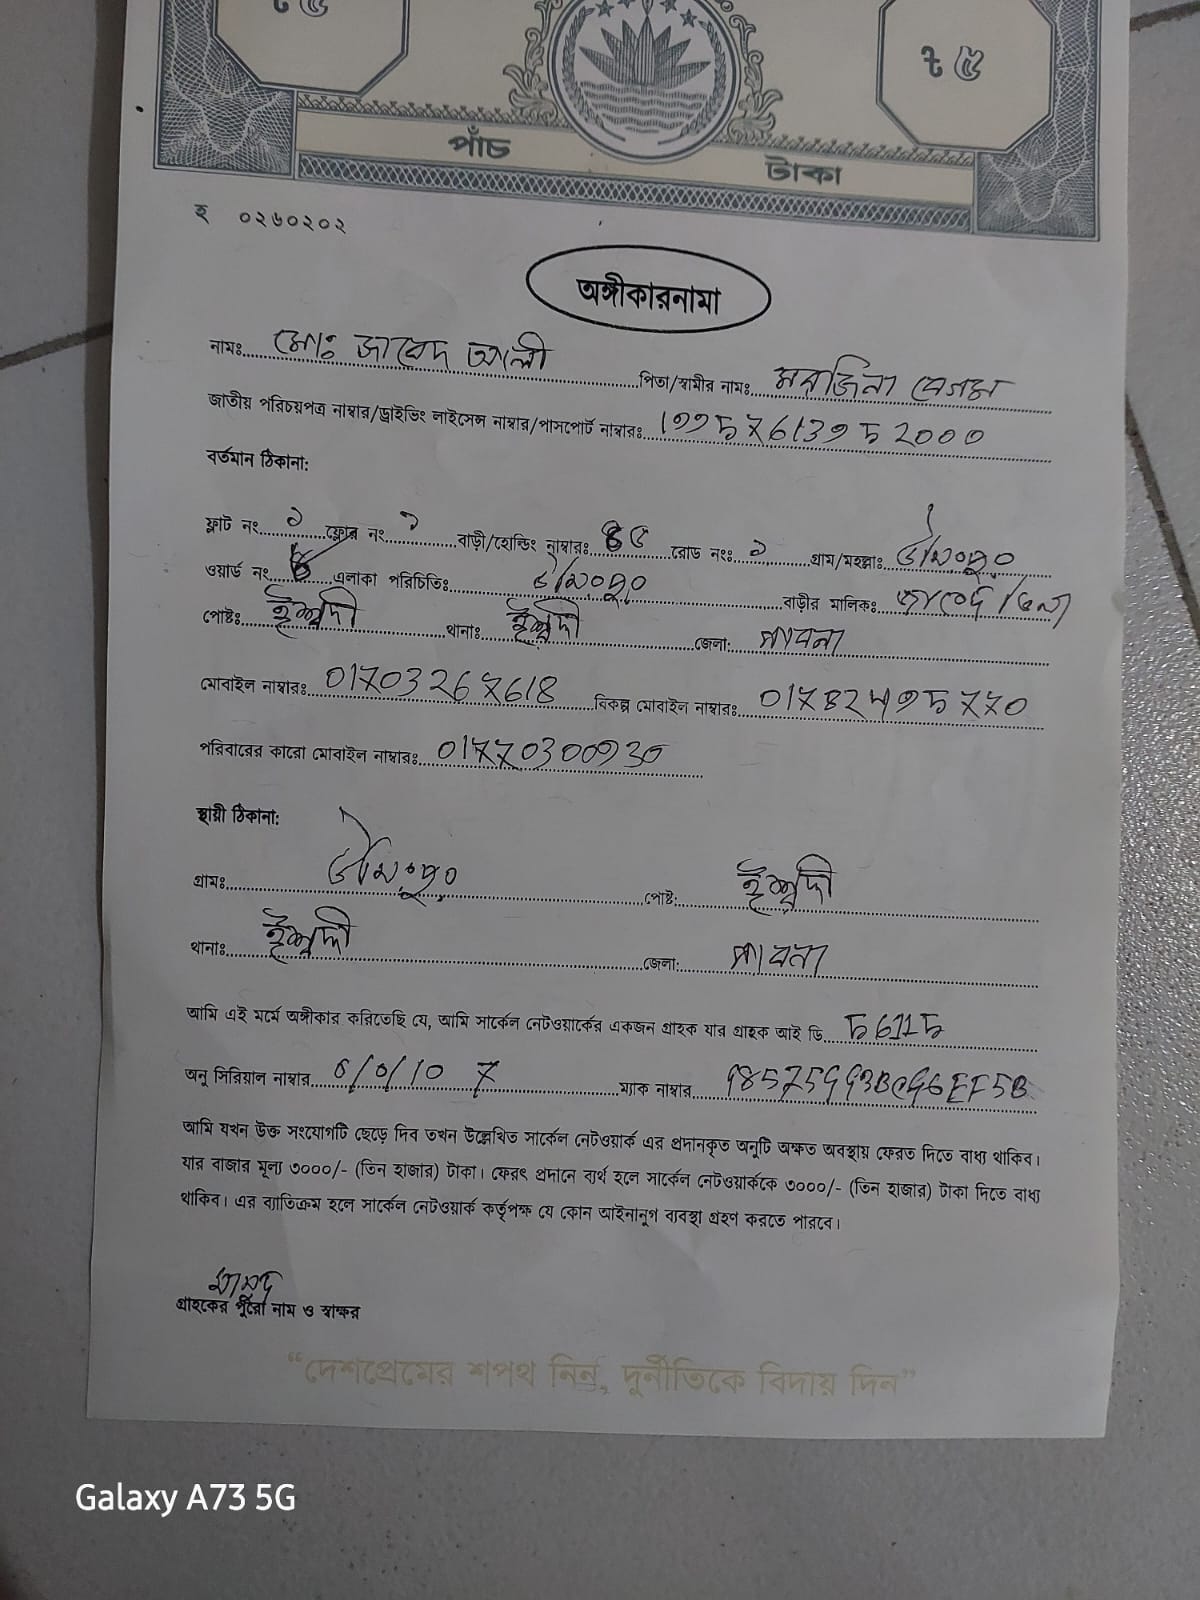 ৳ ৫ ৳ ৫
পাঁচ টাকা
হ ০২৬০২০২
অঙ্গীকারনামা
নামঃ মোঃ জাবেদ আলী পিতা/স্বামীর নামঃ মরজিনা বেগম
জাতীয় পরিচয়পত্র নাম্বার/ড্রাইভিং লাইসেন্স নাম্বার/পাসপোর্ট নাম্বারঃ
বর্তমান ঠিকানা:
ফ্লাট নং ১ ফ্লোর নং ১ বাড়ী/হোল্ডিং নাম্বারঃ রোড নংঃ ১ গ্রাম/মহল্লাঃ
ওয়ার্ড নং এলাকা পরিচিতিঃ বাড়ীর মালিকঃ
পোষ্টঃ ঈশ্বরদী থানাঃ ঈশ্বরদী জেলা: পাবনা
মোবাইল নাম্বারঃ 01703267618 বিকল্প মোবাইল নাম্বারঃ
পরিবারের কারো মোবাইল নাম্বারঃ
স্থায়ী ঠিকানা:
গ্রামঃ পোষ্ট: ঈশ্বরদী
থানাঃ ঈশ্বরদী জেলা: পাবনা
আমি এই মর্মে অঙ্গীকার করিতেছি যে, আমি সার্কেল নেটওয়ার্কের একজন গ্রাহক যার গ্রাহক আই ডি
অনু সিরিয়াল নাম্বার ম্যাক নাম্বার
আমি যখন উক্ত সংযোগটি ছেড়ে দিব তখন উল্লেখিত সার্কেল নেটওয়ার্ক এর প্রদানকৃত অনুটি অক্ষত অবস্থায় ফেরত দিতে বাধ্য থাকিব।
যার বাজার মূল্য ৩০০০/- (তিন হাজার) টাকা। ফেরৎ প্রদানে ব্যর্থ হলে সার্কেল নেটওয়ার্ককে ৩০০০/- (তিন হাজার) টাকা দিতে বাধ্য
থাকিব। এর ব্যাতিক্রম হলে সার্কেল নেটওয়ার্ক কর্তৃপক্ষ যে কোন আইনানুগ ব্যবস্থা গ্রহণ করতে পারবে।
গ্রাহকের পুরো নাম ও স্বাক্ষর
“দেশপ্রেমের শপথ নিন, দুর্নীতিকে বিদায় দিন”
Galaxy A73 5G